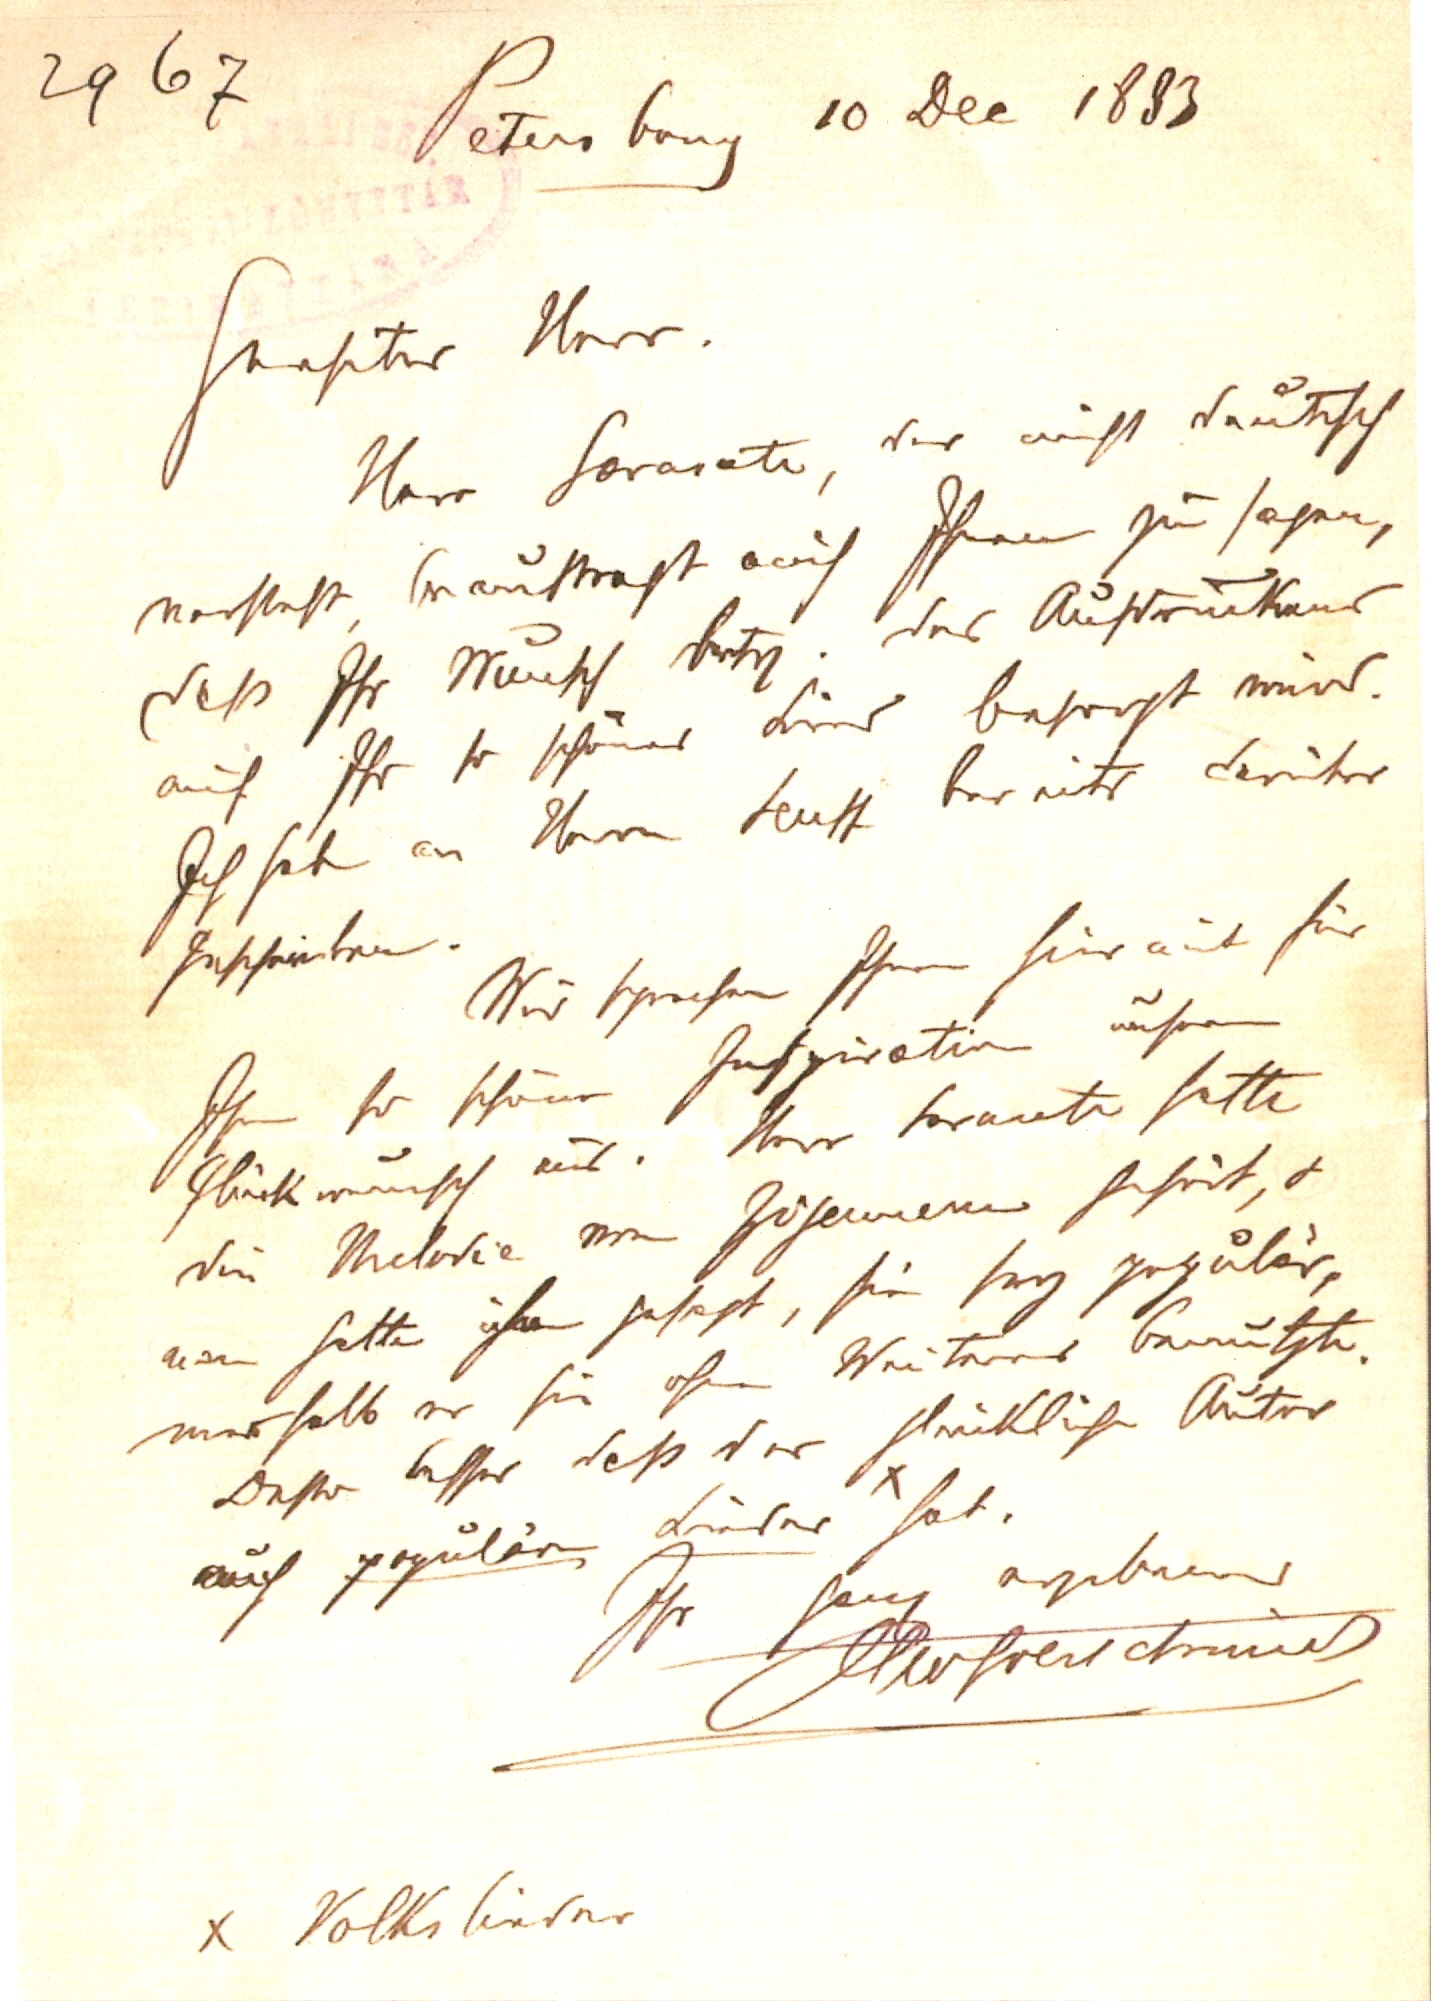 2967
Petersburg 10 Dec 1883
Geehrter Herr.
Herr Sarasate, der nicht deutsch
versteht, beauftragt mich Ihnen zu sagen,
daß Ihr Wunsch betr. des Aufdruckens
auf Ihr so schönes Lied besorgt wird.
Ich habe an Herrn Senff bereits darüber
geschrieben.
Wir sprechen Ihnen hiermit für
Ihre so schöne Inspiration unseren
Glückwunsch aus. Herr Sarasate hatte
die Melodie von Zigeunern gehört, &
man hatte ihm gesagt, sie sey populär,
weshalb er sie ohne Weiteres benutzte.
Desto besser daß der glückliche Autor
auch populäre Lieder x hat.
Ihr ganz ergebener
Otto Goldschmidt
x Volkslieder